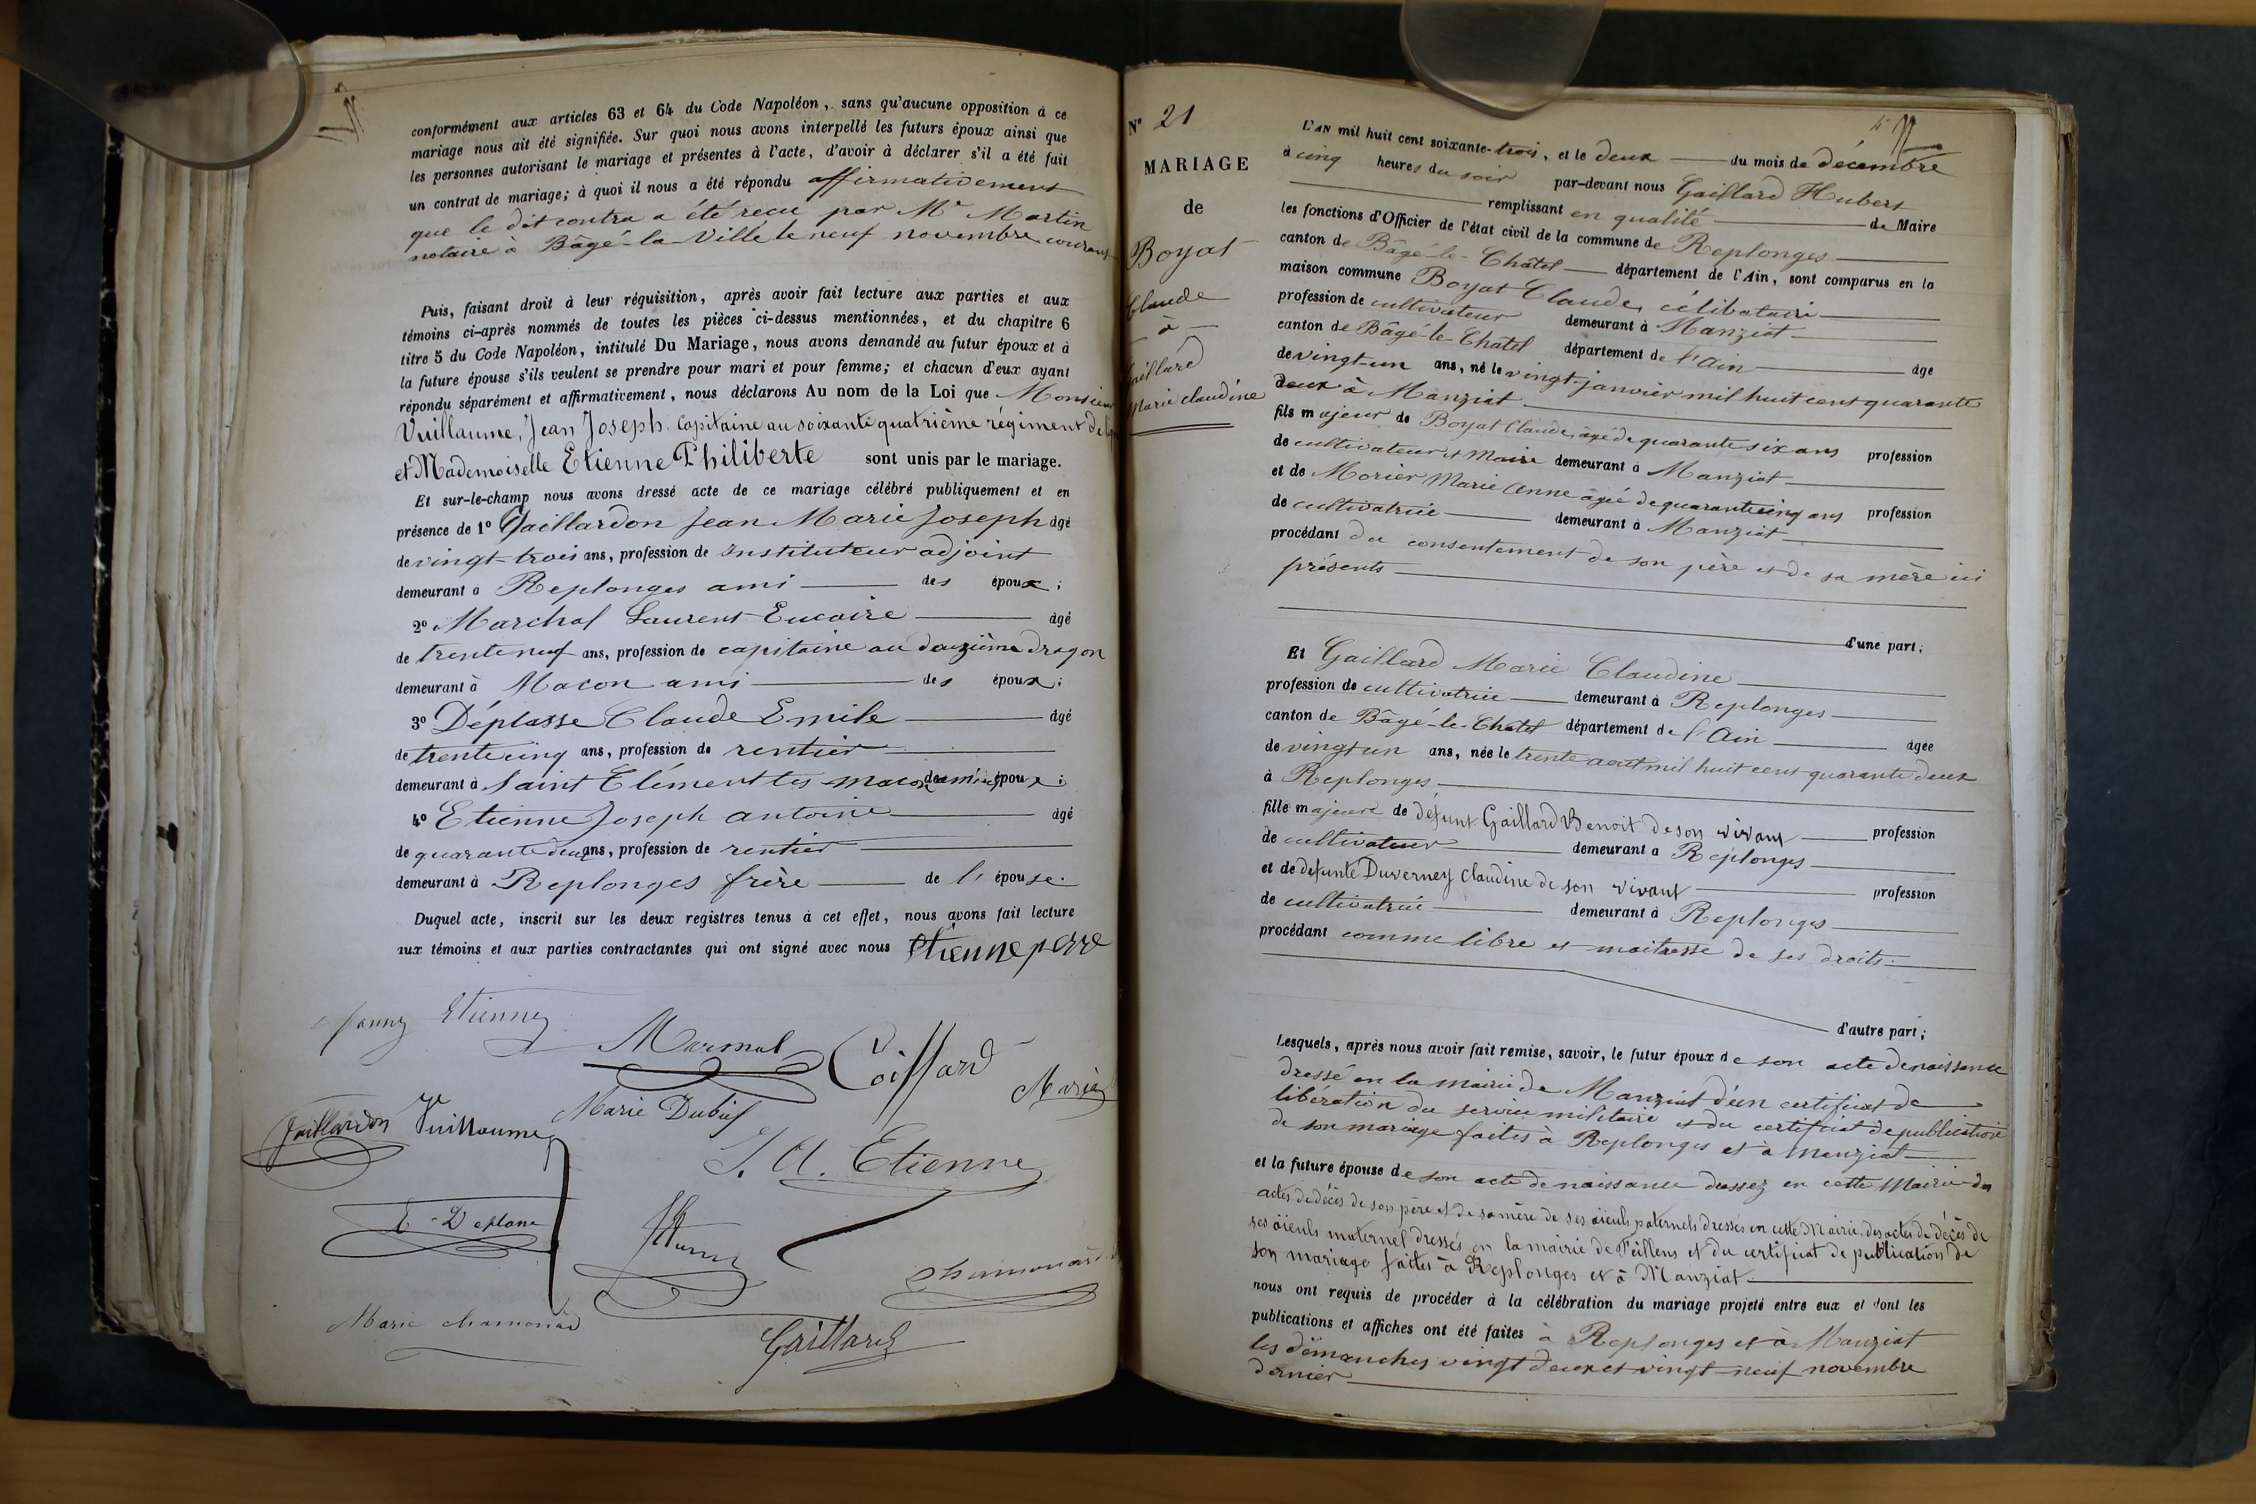 conformément aux articles 63 et 64 du Code Napoléon, sans qu'aucune opposition à ce
mariage nous ait été signifiée. Sur quoi nous avons interpellé les futurs époux ainsi que
les personnes autorisant le mariage et présentes à l'acte, d'avoir à déclarer s'il a été fait
un contrat de mariage; à quoi il nous a été répondu affirmativement
que le dit contra a été recu par Mr Martin
notaire à Bâgé-la-Ville le neuf novembre courant
Puis, faisant droit à leur réquisition, après avoir fait lecture aux parties et aux
témoins ci-après nommés de toutes les pièces ci-dessus mentionnées, et du chapitre 6
titre 5 du Code Napoléon, intitulé Du Mariage, nous avons demandé au futur époux et à
la future épouse s'ils veulent se prendre pour mari et pour femme; et chacun d'eux ayant
répondu séparément et affirmativement, nous déclarons Au nom de la Loi que Monsieur
Vuillaume, Jean Joseph. Capitaine au soixante quatrième régiment de
et Mademoiselle Etienne Philiberte sont unis par le mariage.
Et sur-le-champ nous avons dressé acte de ce mariage célébré publiquement et en
présence de 1º Gaillardon Jean Marie Joseph âgé
de vingt-trois ans, profession de instituteur adjoint
demeurant à Replonges ami des époux;
2º Marchal Laurent Eucaire âgé
de trente neuf ans, profession de capitaine au douzième dragon
demeurant à Macon ami des époux;
3º Déplasse Claude Emile âgé
de trente cinq ans, profession de rentier
demeurant à Saint Clément les macon ami des époux;
4º Etienne Joseph antoine âgé
de quarante deux ans, profession de rentier
demeurant à Replonges frère de l' épouse.
Duquel acte, inscrit sur les deux registres tenus à cet effet, nous avons fait lecture
aux témoins et aux parties contractantes qui ont signé avec nous Etienne perre
fanny Etienne
Marmal
Coiffard
Marie
Gaillardon
Vuillaume
Marie Dubuf
J. A. Etienne
E. Deplasse
Marie chamonard
Gaillard
Nº 21
MARIAGE
de
Boyat
Claude
à
Gaillard
Marie claudine
L'AN mil huit cent soixante-trois, et le deux du mois de décembre
à cinq heures du soir par-devant nous Gaillard Hubert
remplissant en qualité de Maire
les fonctions d'Officier de l'état civil de la commune de Replonges
canton de Bâgé-le-Châtel département de l'Ain, sont comparus en la
maison commune Boyat Claude, célibataire
profession de cultivateur demeurant à Manziat
canton de Bâgé-le-Châtel département de l'Ain âgé
de vingt-un ans, né le vingt janvier mil huit cent quarante
deux à Manziat
fils majeur de Boyat Claude, âgé de quarante six ans profession
de cultivateur et Maire demeurant à Manziat
et de Morier Marie Anne âgée de quarante cinq ans profession
de cultivatrice demeurant à Manziat
procédant du consentement de son père et de sa mère ici
présents
d'une part;
Et Gaillard Marie Claudine
profession de cultivatrice demeurant à Replonges
canton de Bâgé-le-Châtel département de l'Ain âgée
de vingt un ans, née le trente aout mil huit cent quarante deux
à Replonges
fille majeure de défunt Gaillard Benoit de son vivant profession
de cultivateur demeurant à Replonges
et de defunte Duverney Claudine de son vivant profession
de cultivatrice demeurant à Replonges
procédant comme libre et maitresse de ses droits.
d'autre part;
Lesquels, après nous avoir fait remise, savoir, le futur époux de son acte de naissance
dressé en la mairie de Manziat d'un certificat de
libération du service militaire et du certificat de publication
de son mariage faites à Replonges et à Manziat
et la future épouse de son acte de naissance dressez en cette Mairie des
actes de décès de son père et de sa mère de ses aïeuls paternels dressés en cette Mairie, des actes de décès de
ses aïeuls maternel dressés en la mairie de Feillens et du certificat de publication de
son mariage faites à Replonges et à Manziat
nous ont requis de procéder à la célébration du mariage projeté entre eux et dont les
publications et affiches ont été faites à Replonges et à Manziat
les dimanches vingt deux et vingt-neuf novembre
dernier